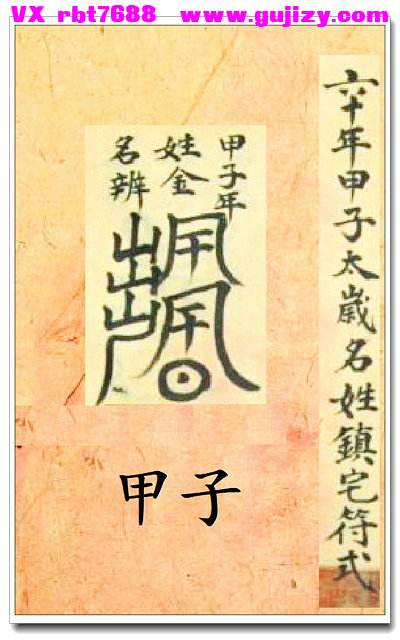 VX rbt7688 www.gujizy.com
六十年甲子太歲名姓鎮宅符式
甲子年
姓金
名辨
甲子